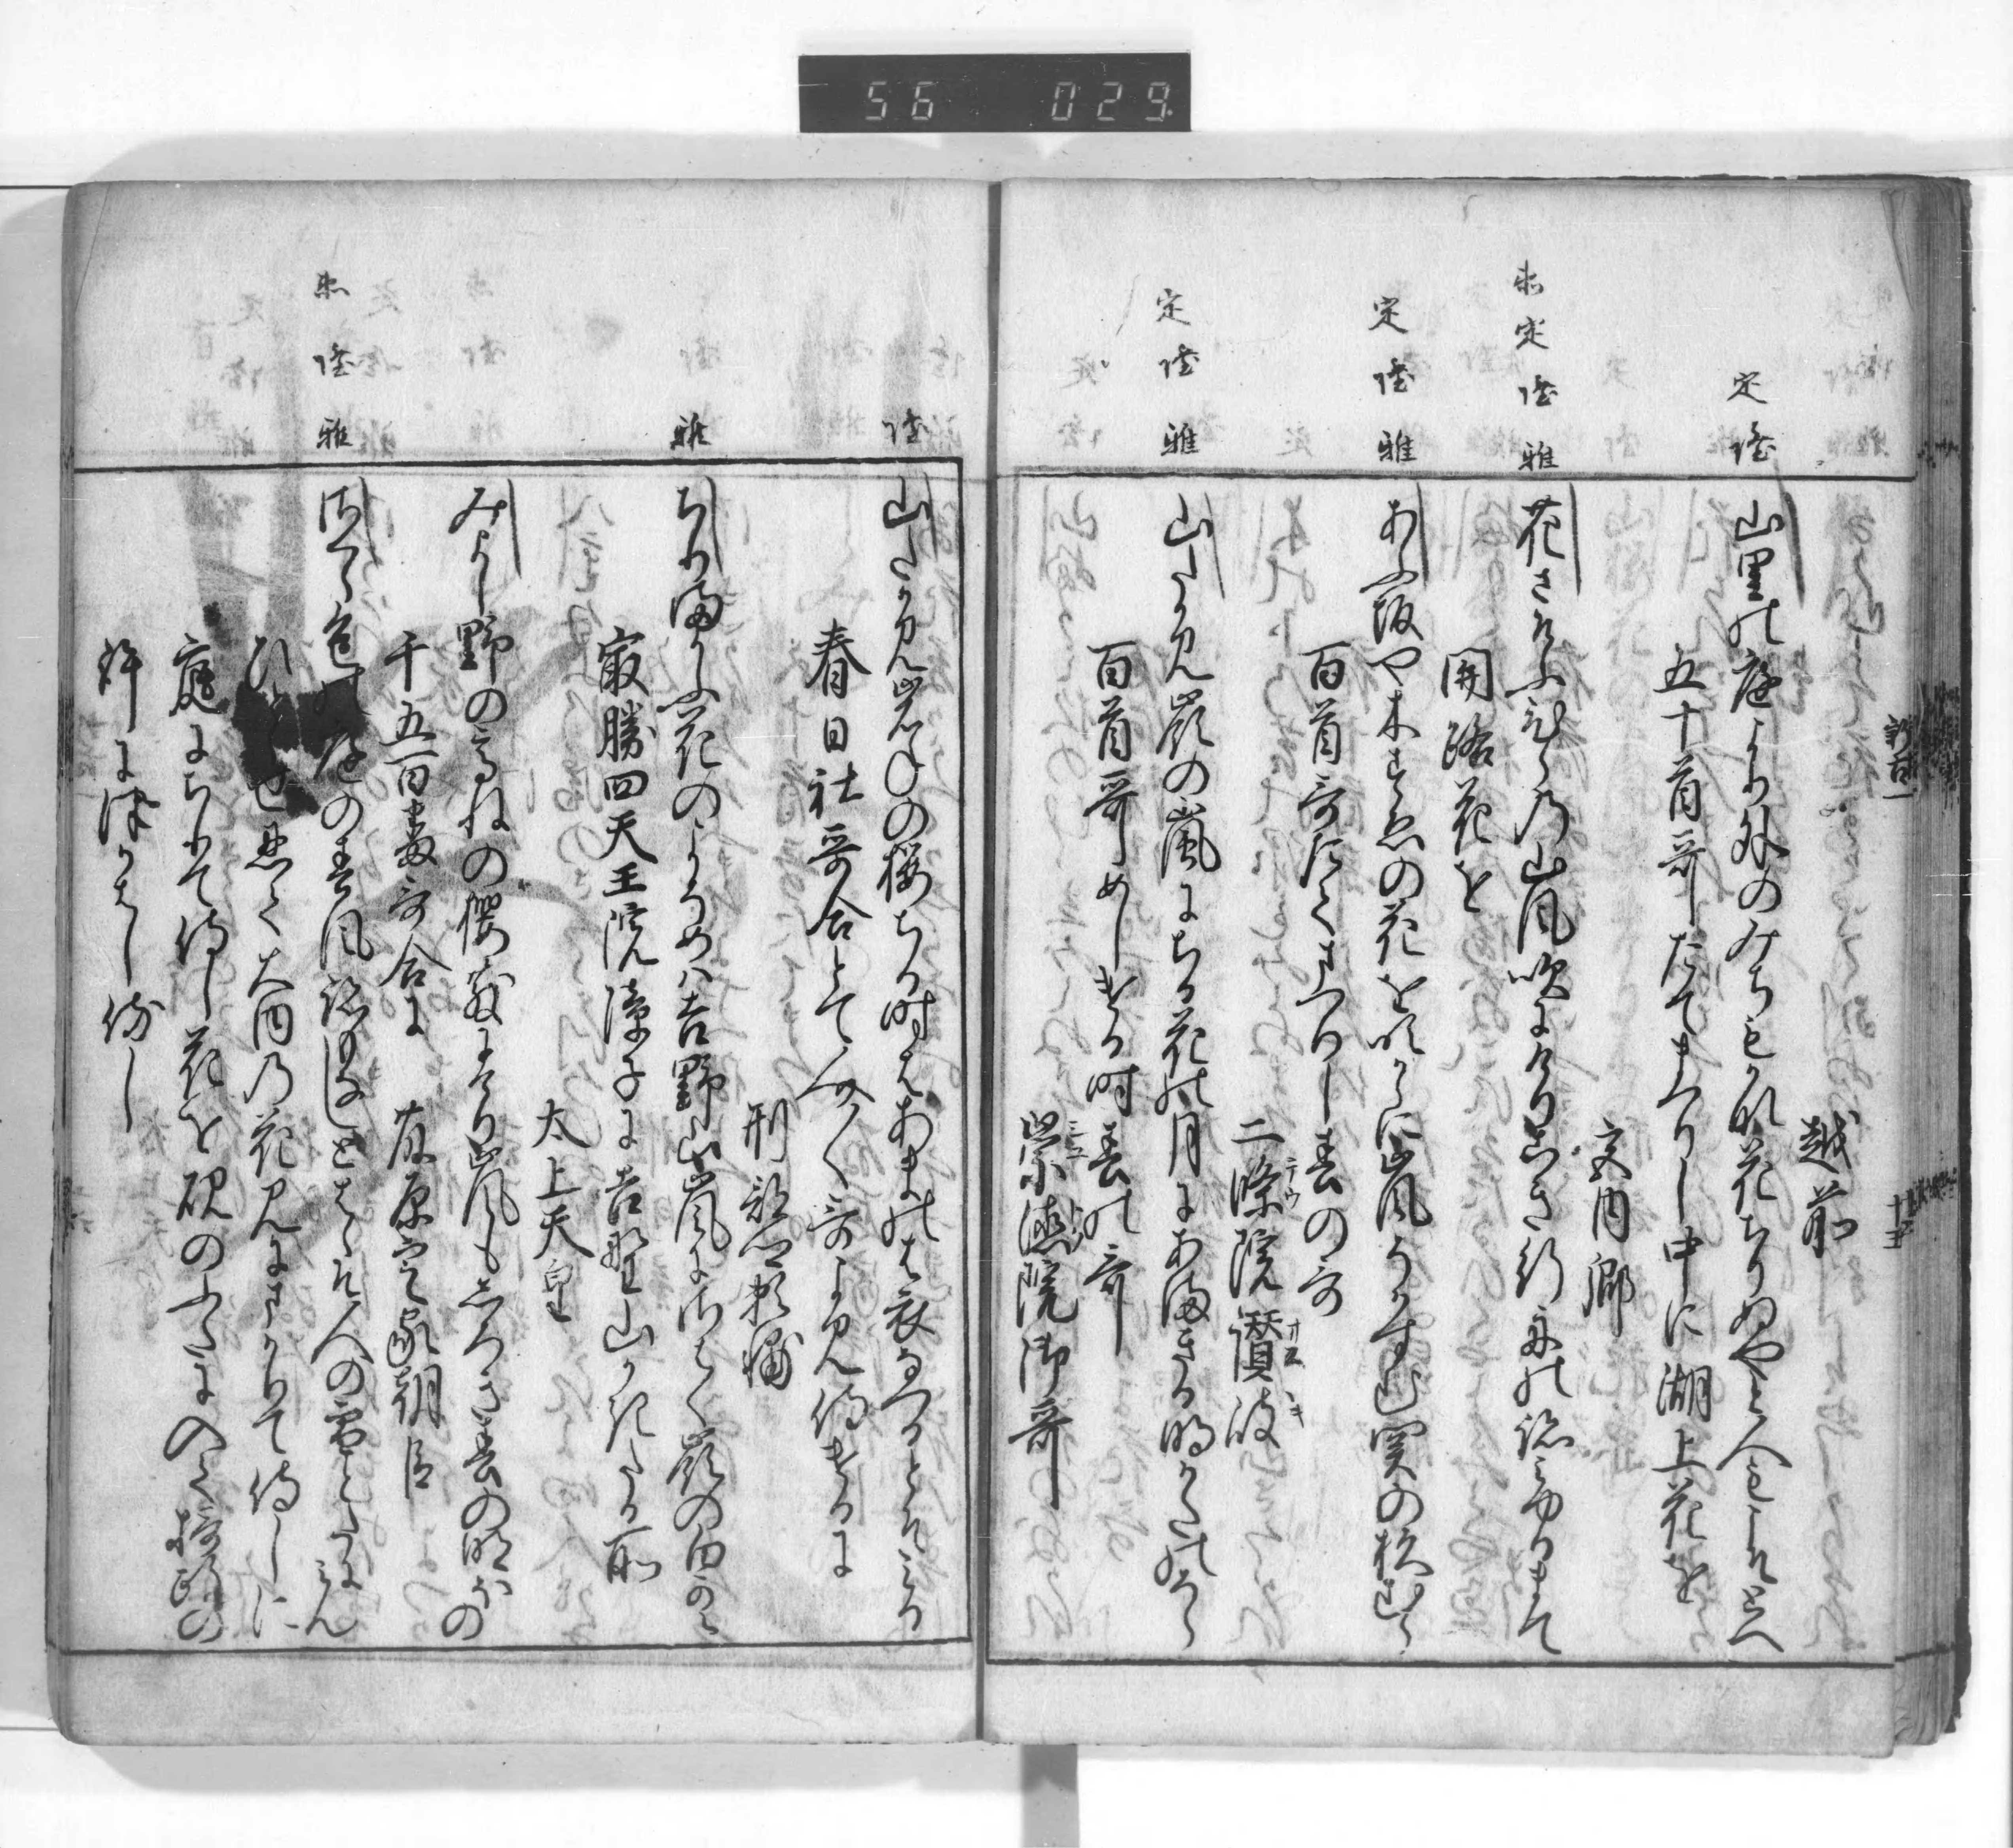 56 029
新古一
十五
越前
定 隆
山里の庭より外のみちもかな花ちりぬやと人もこそとへ
五十首哥たてまつりし中に湖上花を
宮内卿
定 隆 雅
花さそふひらの山風吹にけりこき行舟の跡みゆるまて
関路花を
定 隆 雅
あふ坂や木すゑの花を吹からに嵐そかすむ関の杉むら
百首哥たてまつりし春の哥
二條院讃岐
定 隆 雅
山たかみ嶺の嵐にちる花の月にあまきる明かたのそら
百首哥めしける時春の哥
崇徳院御哥
隆
山たかみ岩ねの桜ちる時はあまのは衣なつるとそみる
春日社哥合とて人〳〵哥よみ侍けるに
刑部卿頼輔
雅
ちりまかふ花のよそめハ吉野山嵐にさはく嶺の白雲
最勝四天王院障子に吉野山かきたる所
太上天皇
みよし野の高ねの桜散にけり嵐もしろき春の明ほの
千五百番哥合に 藤原定家朝臣
隆 雅
桜色の庭の春風跡もなしとはゝそ人の雪とたにみん
ひとゝせ忍て大内の花見にまかりて侍しに
庭にちりて侍し花を硯のふたに入て摂政の
許につかはし侍し